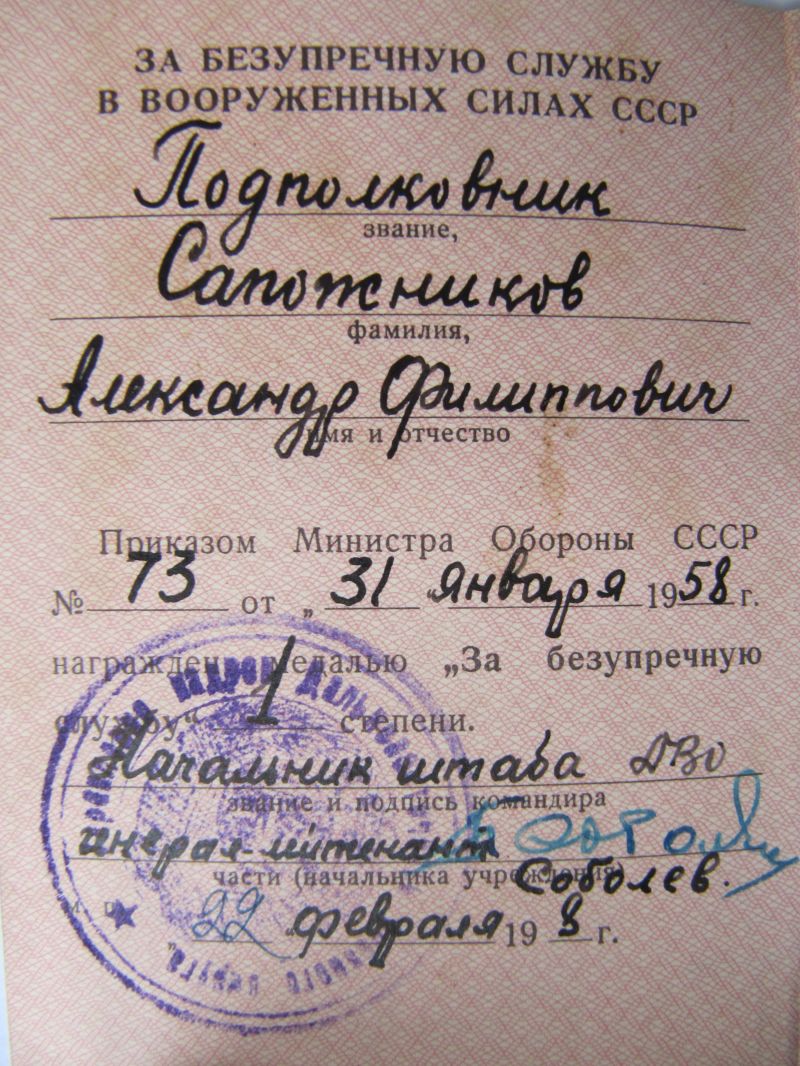 ЗА БЕЗУПРЕЧНУЮ СЛУЖБУ
В ВООРУЖЕННЫХ СИЛАХ СССР
Подполковник
звание,
Сапожников
фамилия,
Александр Филиппович
имя и отчество
Приказом Министра Обороны СССР
№ 73 от „31 “ января 1958 г.
награжден медалью „За безупречную
службу“ 1 степени.
Начальник штаба ДВО
звание и подпись командира
генерал-лейтенант
части (начальника учреждения)
Соболев.
м. п.
„ 22 “ февраля 19 8 г.